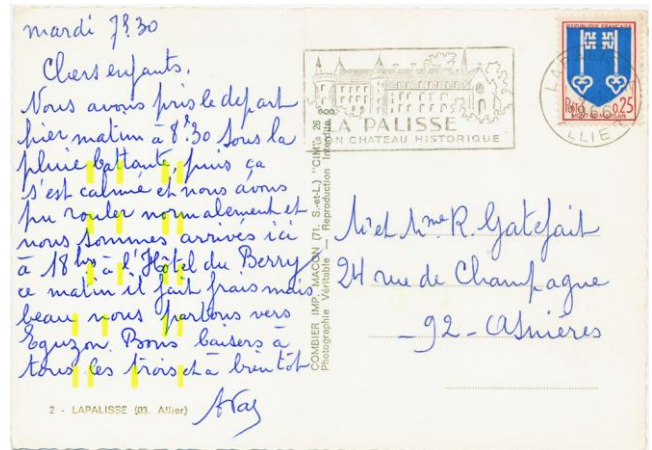 mardi 7h30
Chers enfants.
Nous avons pris le depart
hier matin à 8h30 sous la
pluie battante, puis ça
s'est calmé et nous avons
pu rouler normalement et
nous sommes arrivés ici
à 18 hrs à l'Hôtel du Berry
ce matin il fait frais mais
beau nous partons vers
Eguzon. Bons baisers à
tous les trois et à bientôt
2 - LAPALISSE (03. Allier)
COMBIER IMP. MACON (71. S.-et-L.) "CIM"
Photographie Véritable — Reproduction Interdite
LA PALISSE
SON CHATEAU HISTORIQUE
REPUBLIQUE FRANCAISE
POSTES 0,25
MONT-DE-MARSAN
Mr et Mme R. Gatefait
24 rue de Champagne
- 92 - Asnières